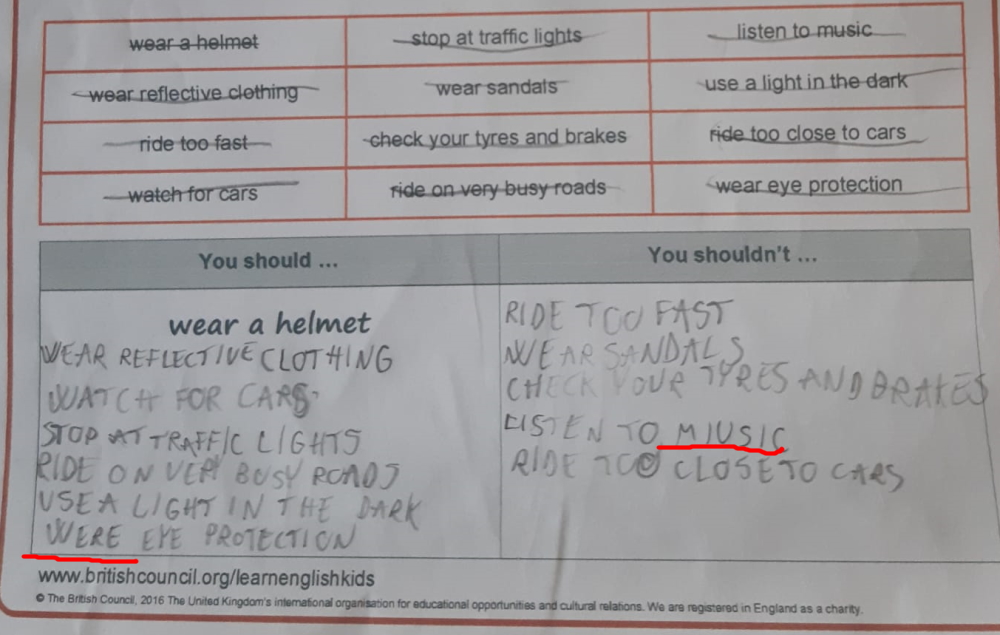 wear a helmet stop at traffic lights listen to music
wear reflective clothing wear sandals use a light in the dark
ride too fast check your tyres and brakes ride too close to cars
watch for cars ride on very busy roads wear eye protection
You should ... You shouldn't ...
wear a helmet
WEAR REFLECTIVE CLOTHING
WATCH FOR CARS
STOP AT TRAFFIC LIGHTS
RIDE ON VERY BUSY ROADS
USE A LIGHT IN THE DARK
WERE EYE PROTECTION
RIDE TOO FAST
WEAR SANDALS
CHECK YOUR TYRES AND BRAKES
LISTEN TO MIUSIC
RIDE TOO CLOSE TO CARS
www.britishcouncil.org/learnenglishkids
© The British Council, 2016 The United Kingdom's international organisation for educational opportunities and cultural relations. We are registered in England as a charity.